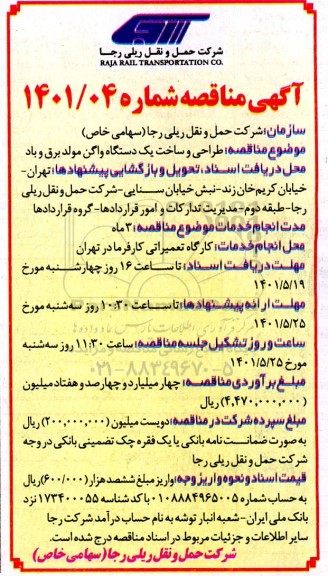 شرکت حمل و نقل ریلی رجا
RAJA RAIL TRANSPORTATION CO.
آگهی مناقصه شماره ۱۴۰۱/۰۴
سازمان: شرکت حمل و نقل ریلی رجا (سهامی خاص)
موضوع مناقصه: طراحی و ساخت یک دستگاه واگن مولد برق و باد
محل دریافت اسناد، تحویل و بازگشایی پیشنهادها: تهران-
خیابان کریم خان زند- نبش خیابان سنایی- شرکت حمل و نقل ریلی
رجا- طبقه دوم- مدیریت تدارکات و امور قراردادها- گروه قراردادها
مدت انجام خدمات موضوع مناقصه: ۳ ماه
محل انجام خدمات: کارگاه تعمیراتی کارفرما در تهران
مهلت دریافت اسناد: تا ساعت ۱۶ روز چهارشنبه مورخ
۱۴۰۱/۵/۱۹
مهلت ارائه پیشنهادها: تا ساعت ۱۰:۳۰ روز سه‌شنبه مورخ
۱۴۰۱/۵/۲۵
ساعت و روز تشکیل جلسه مناقصه: ساعت ۱۱:۳۰ روز سه‌شنبه
مورخ ۱۴۰۱/۵/۲۵
۰۲۱-۸۸۳۴۹۶۷۰-۵
مبلغ برآوردی مناقصه: چهار میلیارد و چهارصد و هفتاد میلیون
(۴,۴۷۰,۰۰۰,۰۰۰) ریال
مبلغ سپرده شرکت در مناقصه: دویست میلیون (۲۰۰,۰۰۰,۰۰۰) ریال
به صورت ضمانت نامه بانکی یا یک فقره چک تضمینی بانکی در وجه
شرکت حمل و نقل ریلی رجا
قیمت اسناد و نحوه واریز وجه: واریز مبلغ ششصد هزار (۶۰۰/۰۰۰) ریال
به حساب شماره ۰۱۰۸۸۸۴۹۶۵۰۰۵ با کد شناسه ۱۷۳۴۰۰۰۵۵ نزد
بانک ملی ایران- شعبه انبار توشه به نام حساب درآمد شرکت رجا
سایر اطلاعات و جزئیات مربوط در اسناد مناقصه درج شده است.
شرکت حمل و نقل ریلی رجا (سهامی خاص)